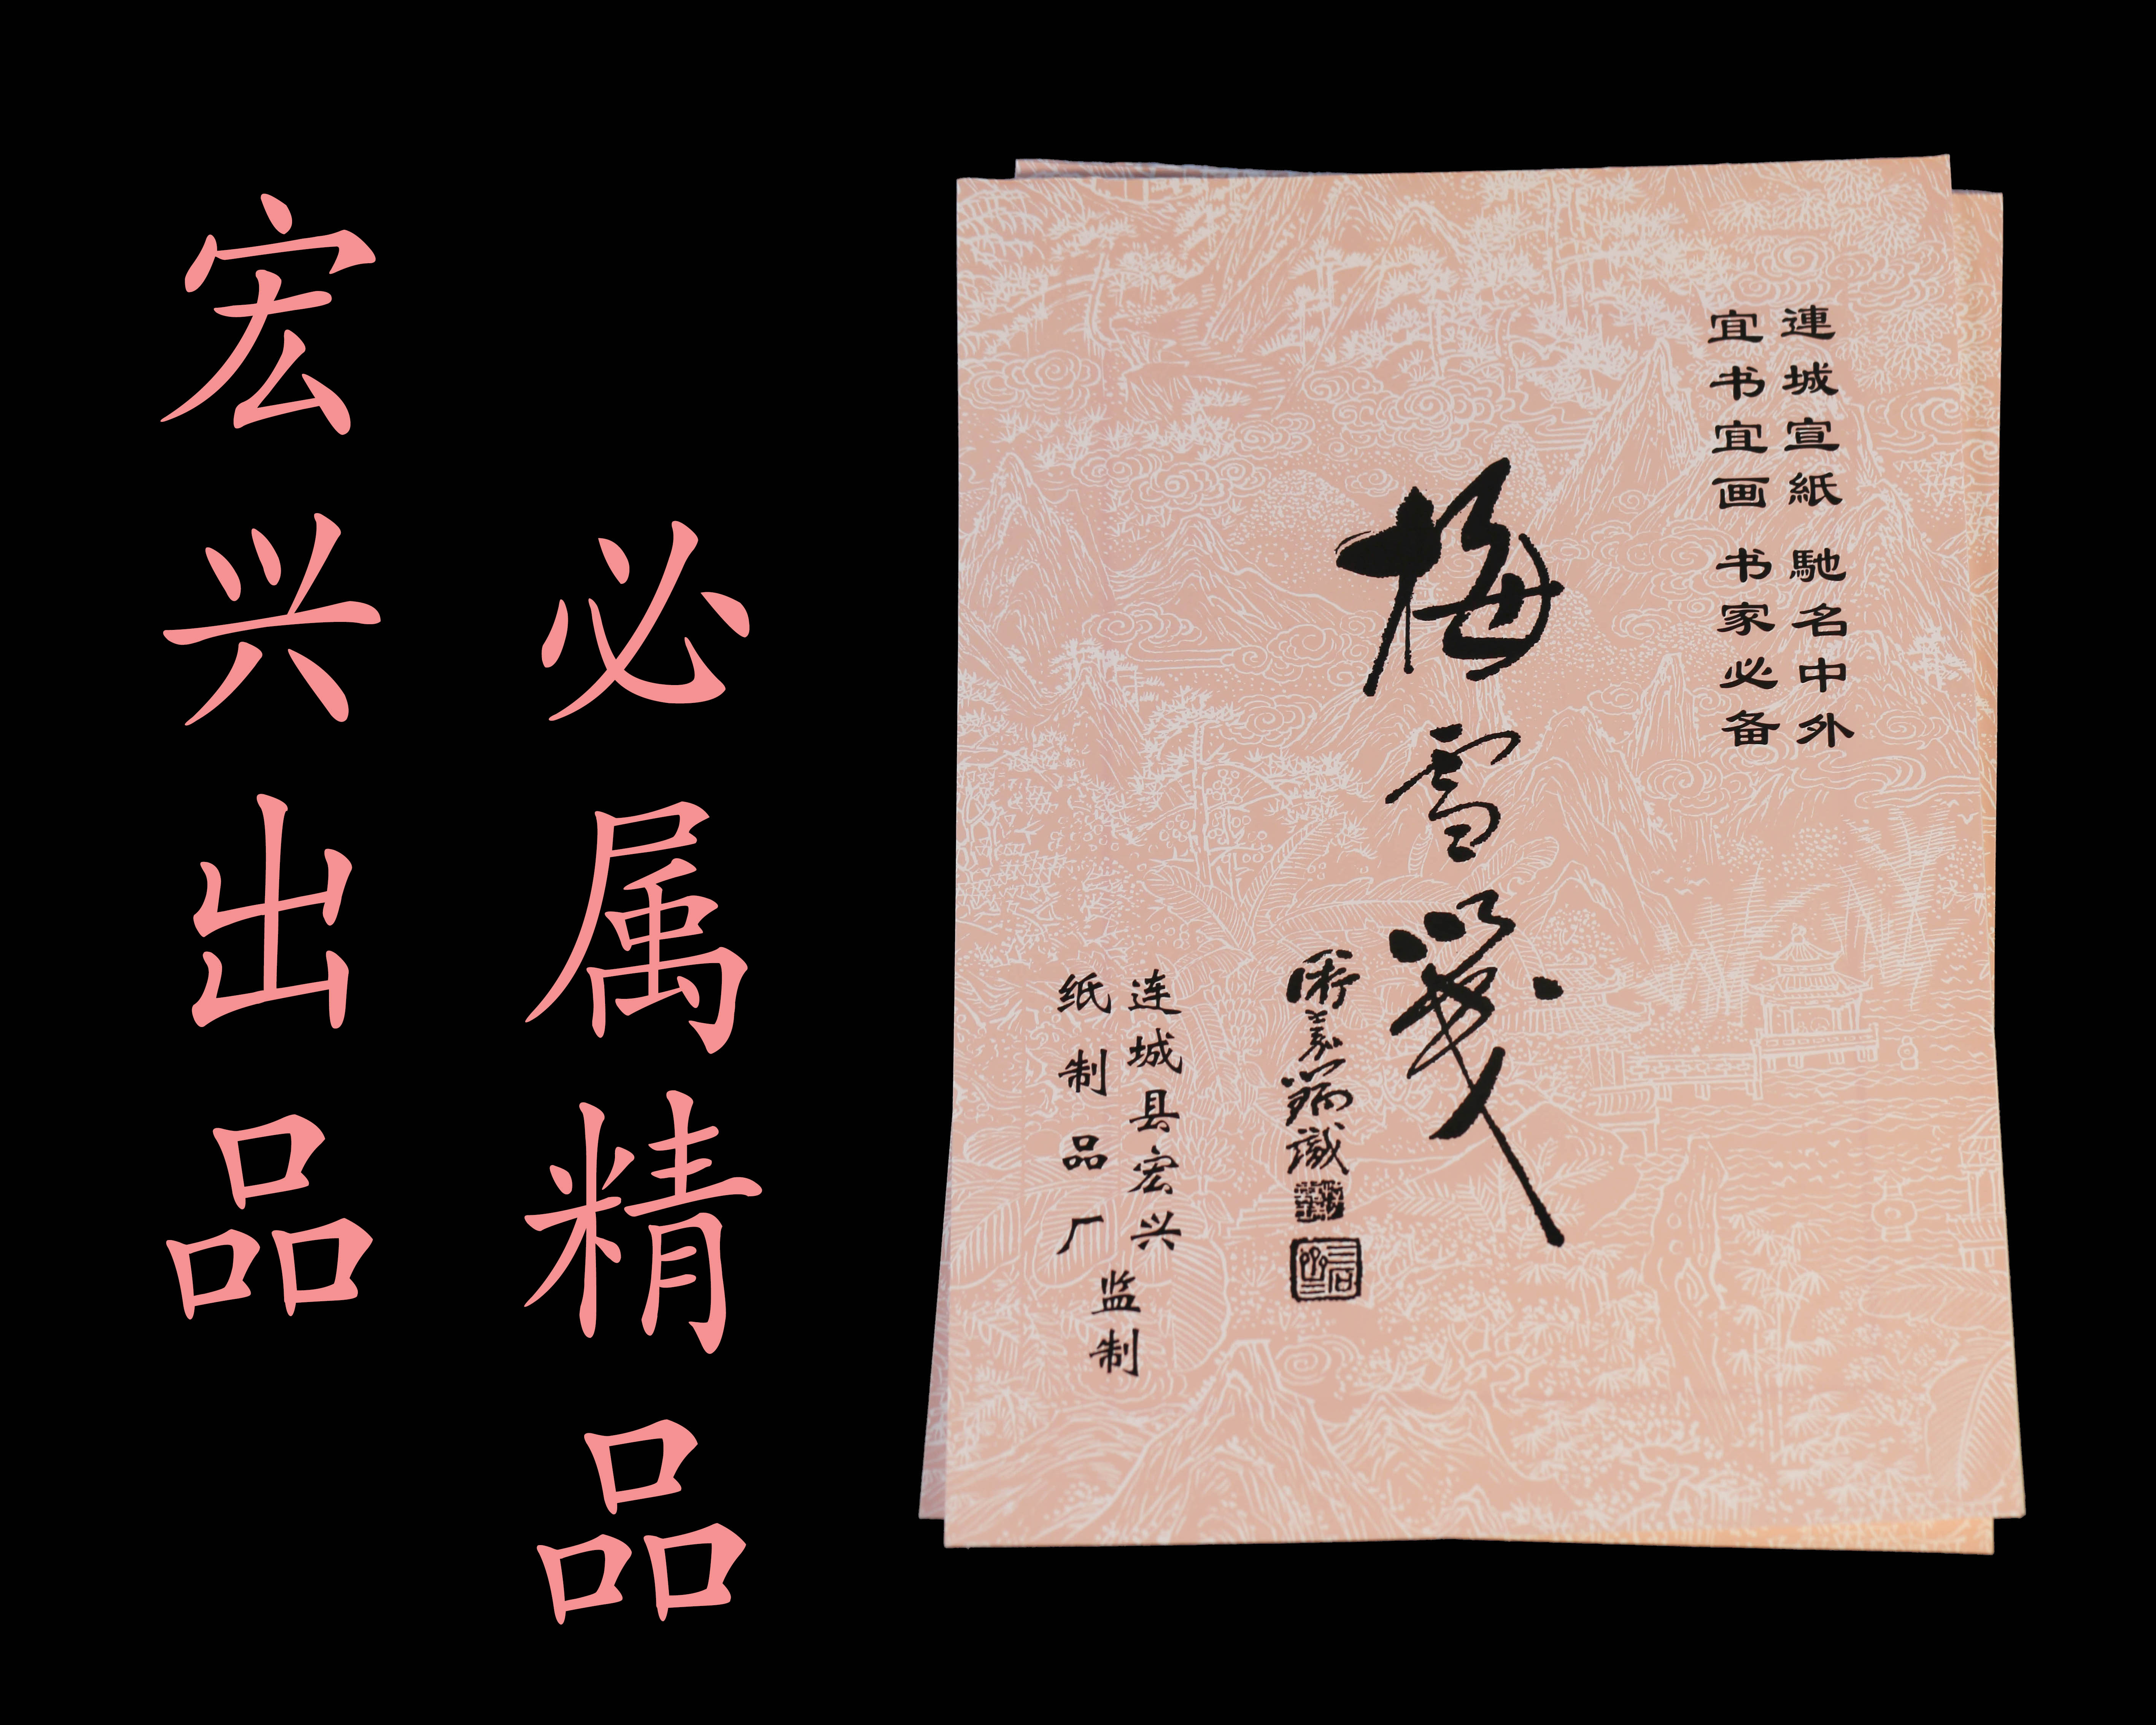 宏兴出品
必属精品
連城宣紙 馳名中外
宜书宜画 书家必备
梅雪笺
连城县宏兴
纸制品厂
监制